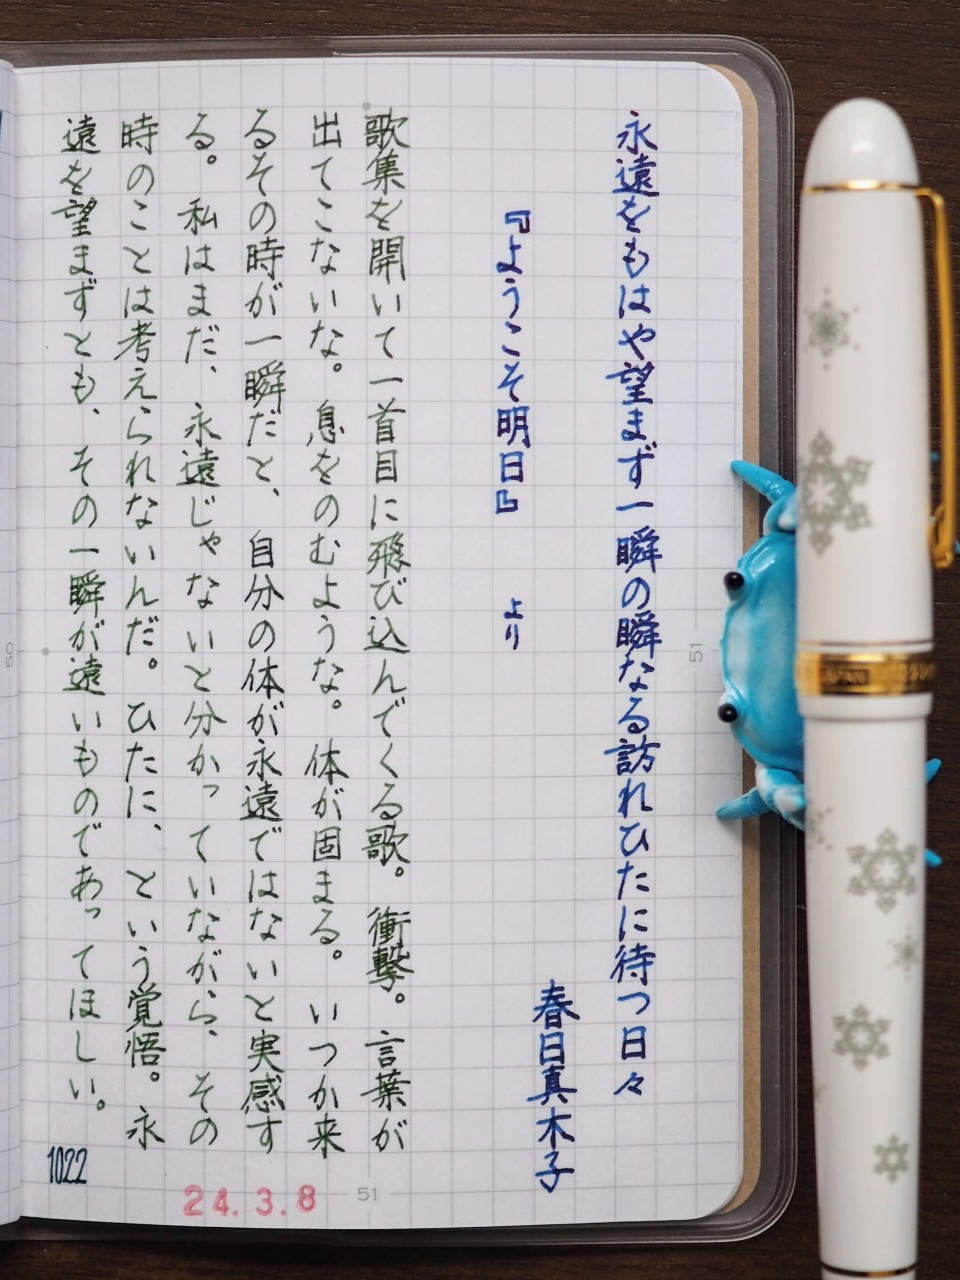 永遠をもはや望まず一瞬の瞬なる訪れひたに待つ日々
春日真木子
『ようこそ明日』 より
歌集を開いて一首目に飛び込んでくる歌。衝撃。言葉が
出てこないな。息をのむような。体が固まる。いつか来
るその時が一瞬だと、自分の体が永遠ではないと実感す
る。私はまだ、永遠じゃないと分かっていながら、その
時のことは考えられないんだ。ひたに、という覚悟。永
遠を望まずとも、その一瞬が遠いものであってほしい。
1022
24.3.8
51
51
50
JAPAN